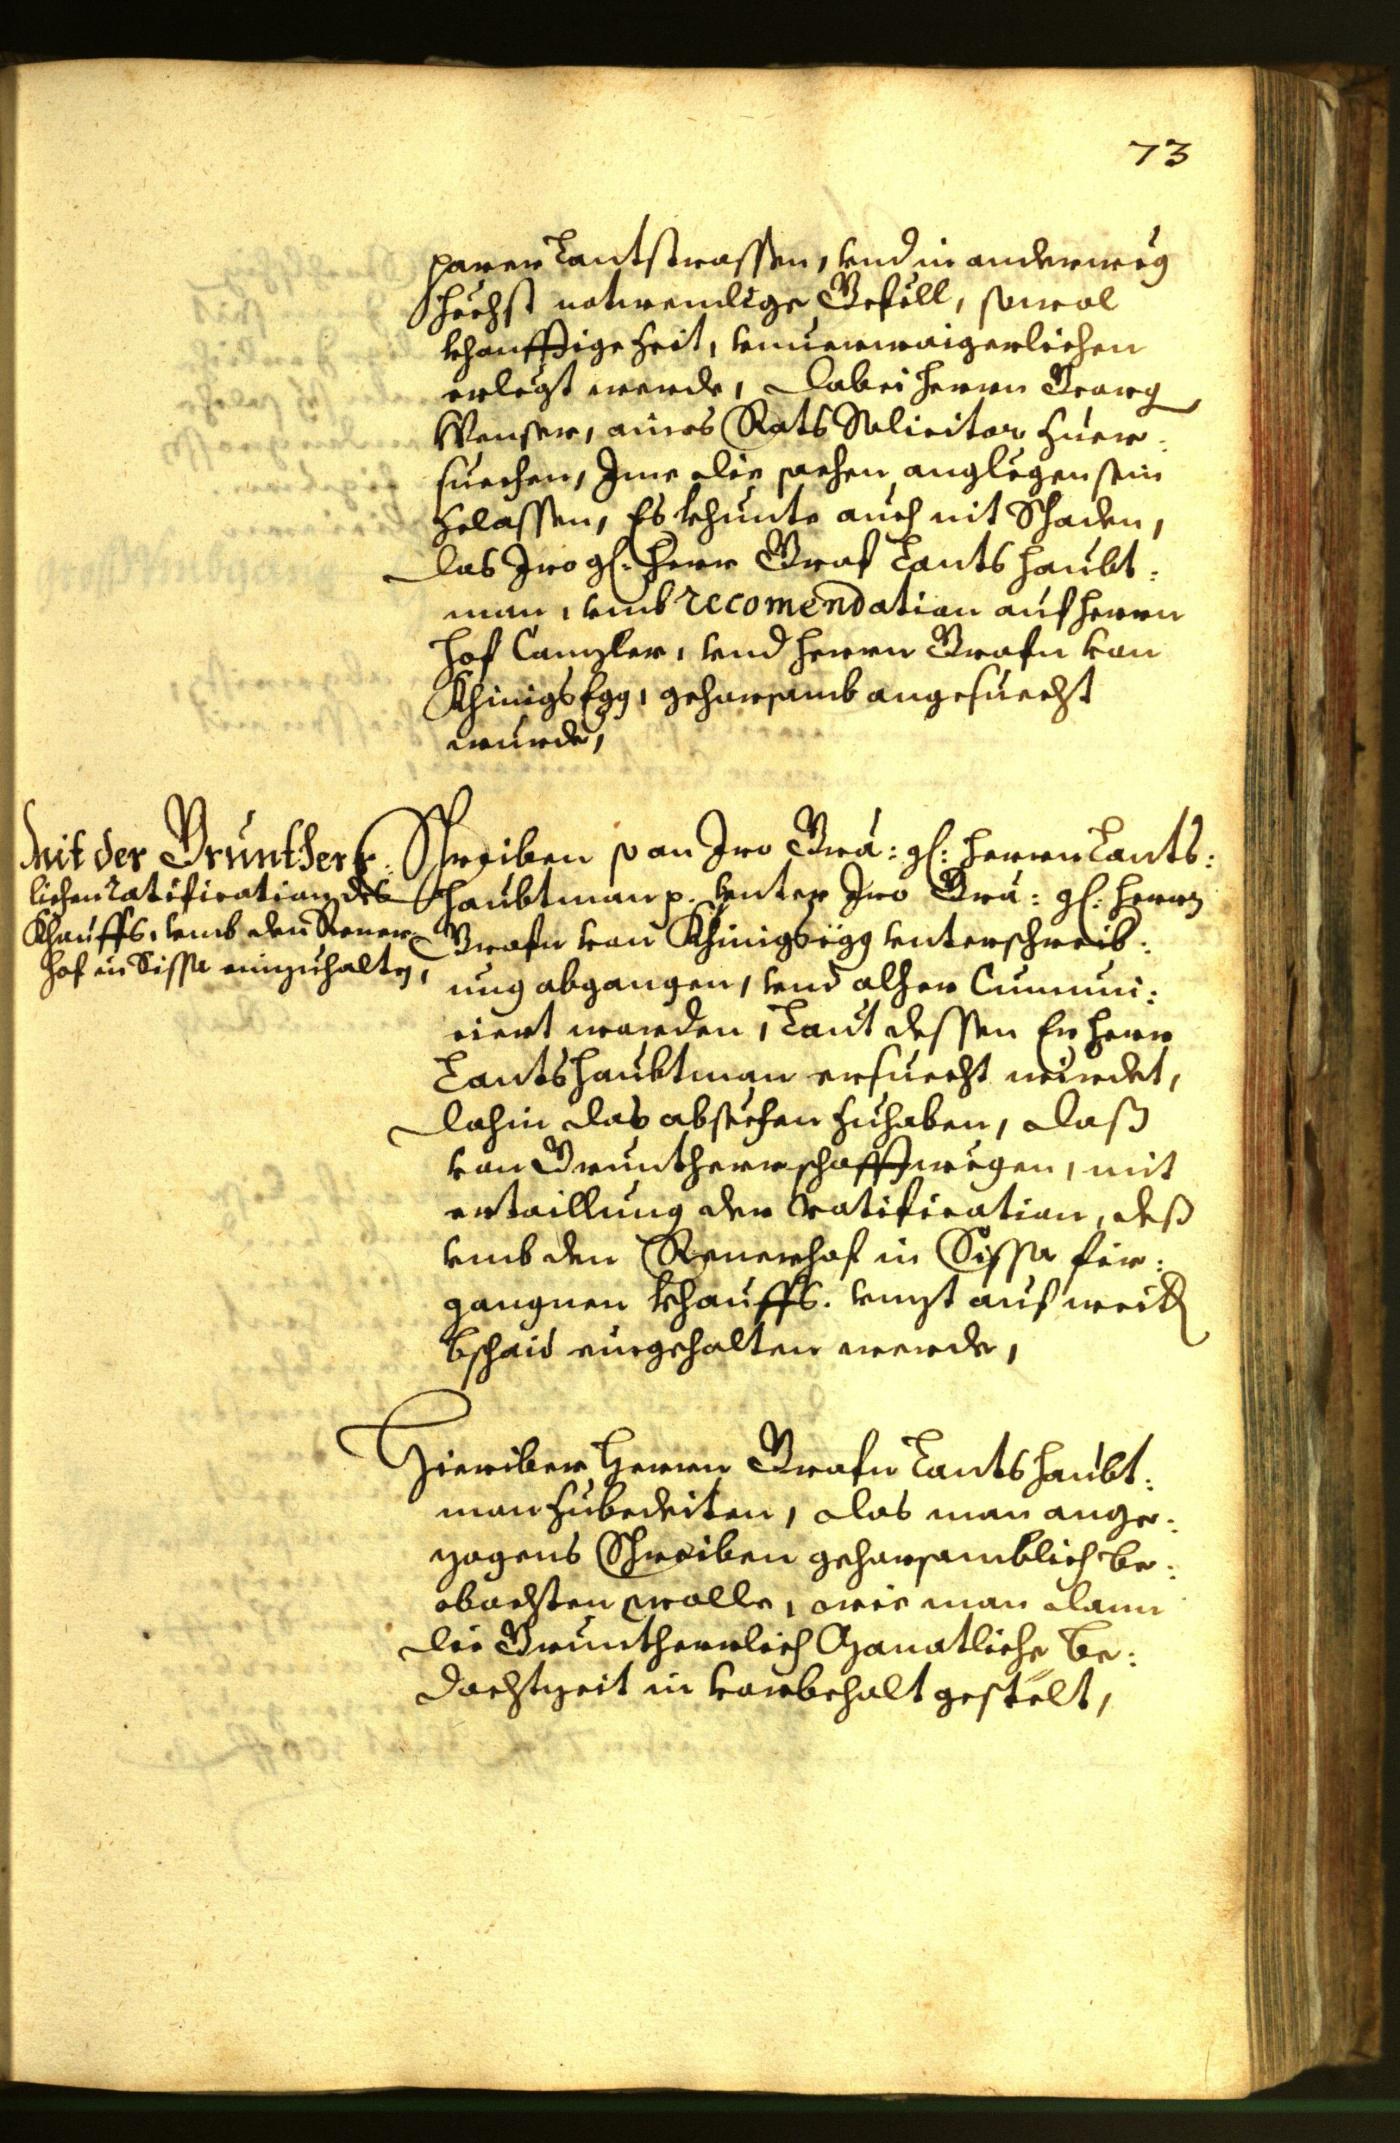 73
parer Lantstrassen, vnd in anderweg
höchst notwendige Gefell, sowol
khonfftige Zeit, vnuerwaigerlichen
erlegt werde, dabei herrn Georg
Wenser, aines Rats Solicitor zuer-
suechen, Ime die sachen anglegen sein
zelassen, Es khunte auch nit Schaden,
das Iro gl: herr Graf Lantshaubt:
man, vmb recomendation auf herrn
hof Canzler, vnd herrn Grafn von
Khinigs Egg, gehorsamb angesuecht
wurde,
Mit der Gruntherr:
lichen ratification des
Khauffs, vmb den Rener
hof in Sissa einzuhalten,
Schreiben so an Iro Gra: gl: herrn Lants:
haubtman p. vnter Iro Gra: gl: herrn
Grafn von Khinigsögg vnterschreib:
ung abgangen, vnd alher Cumuni:
ciert worden, Laut dessen Er herr
Lantshaubtman ersuecht würdet,
dahin das absechen zuhaben, daß
von Gruntherrschafft wegen, mit
ertaillung der ratification, deß
vmb den Renerhof in Sissa für:
gangnen khauffs. vnzt auf weitt
bschaid eingehalten werde,
Hieriber herrn Grafn Lantshaubt:
man zubedeiten, das man ange:
zogens Schreiben gehorsamblich be:
obachten wolle, wie man dann
die Gruntherrlich Monatliche be:
dachtzeit in vorbehalt gestelt,